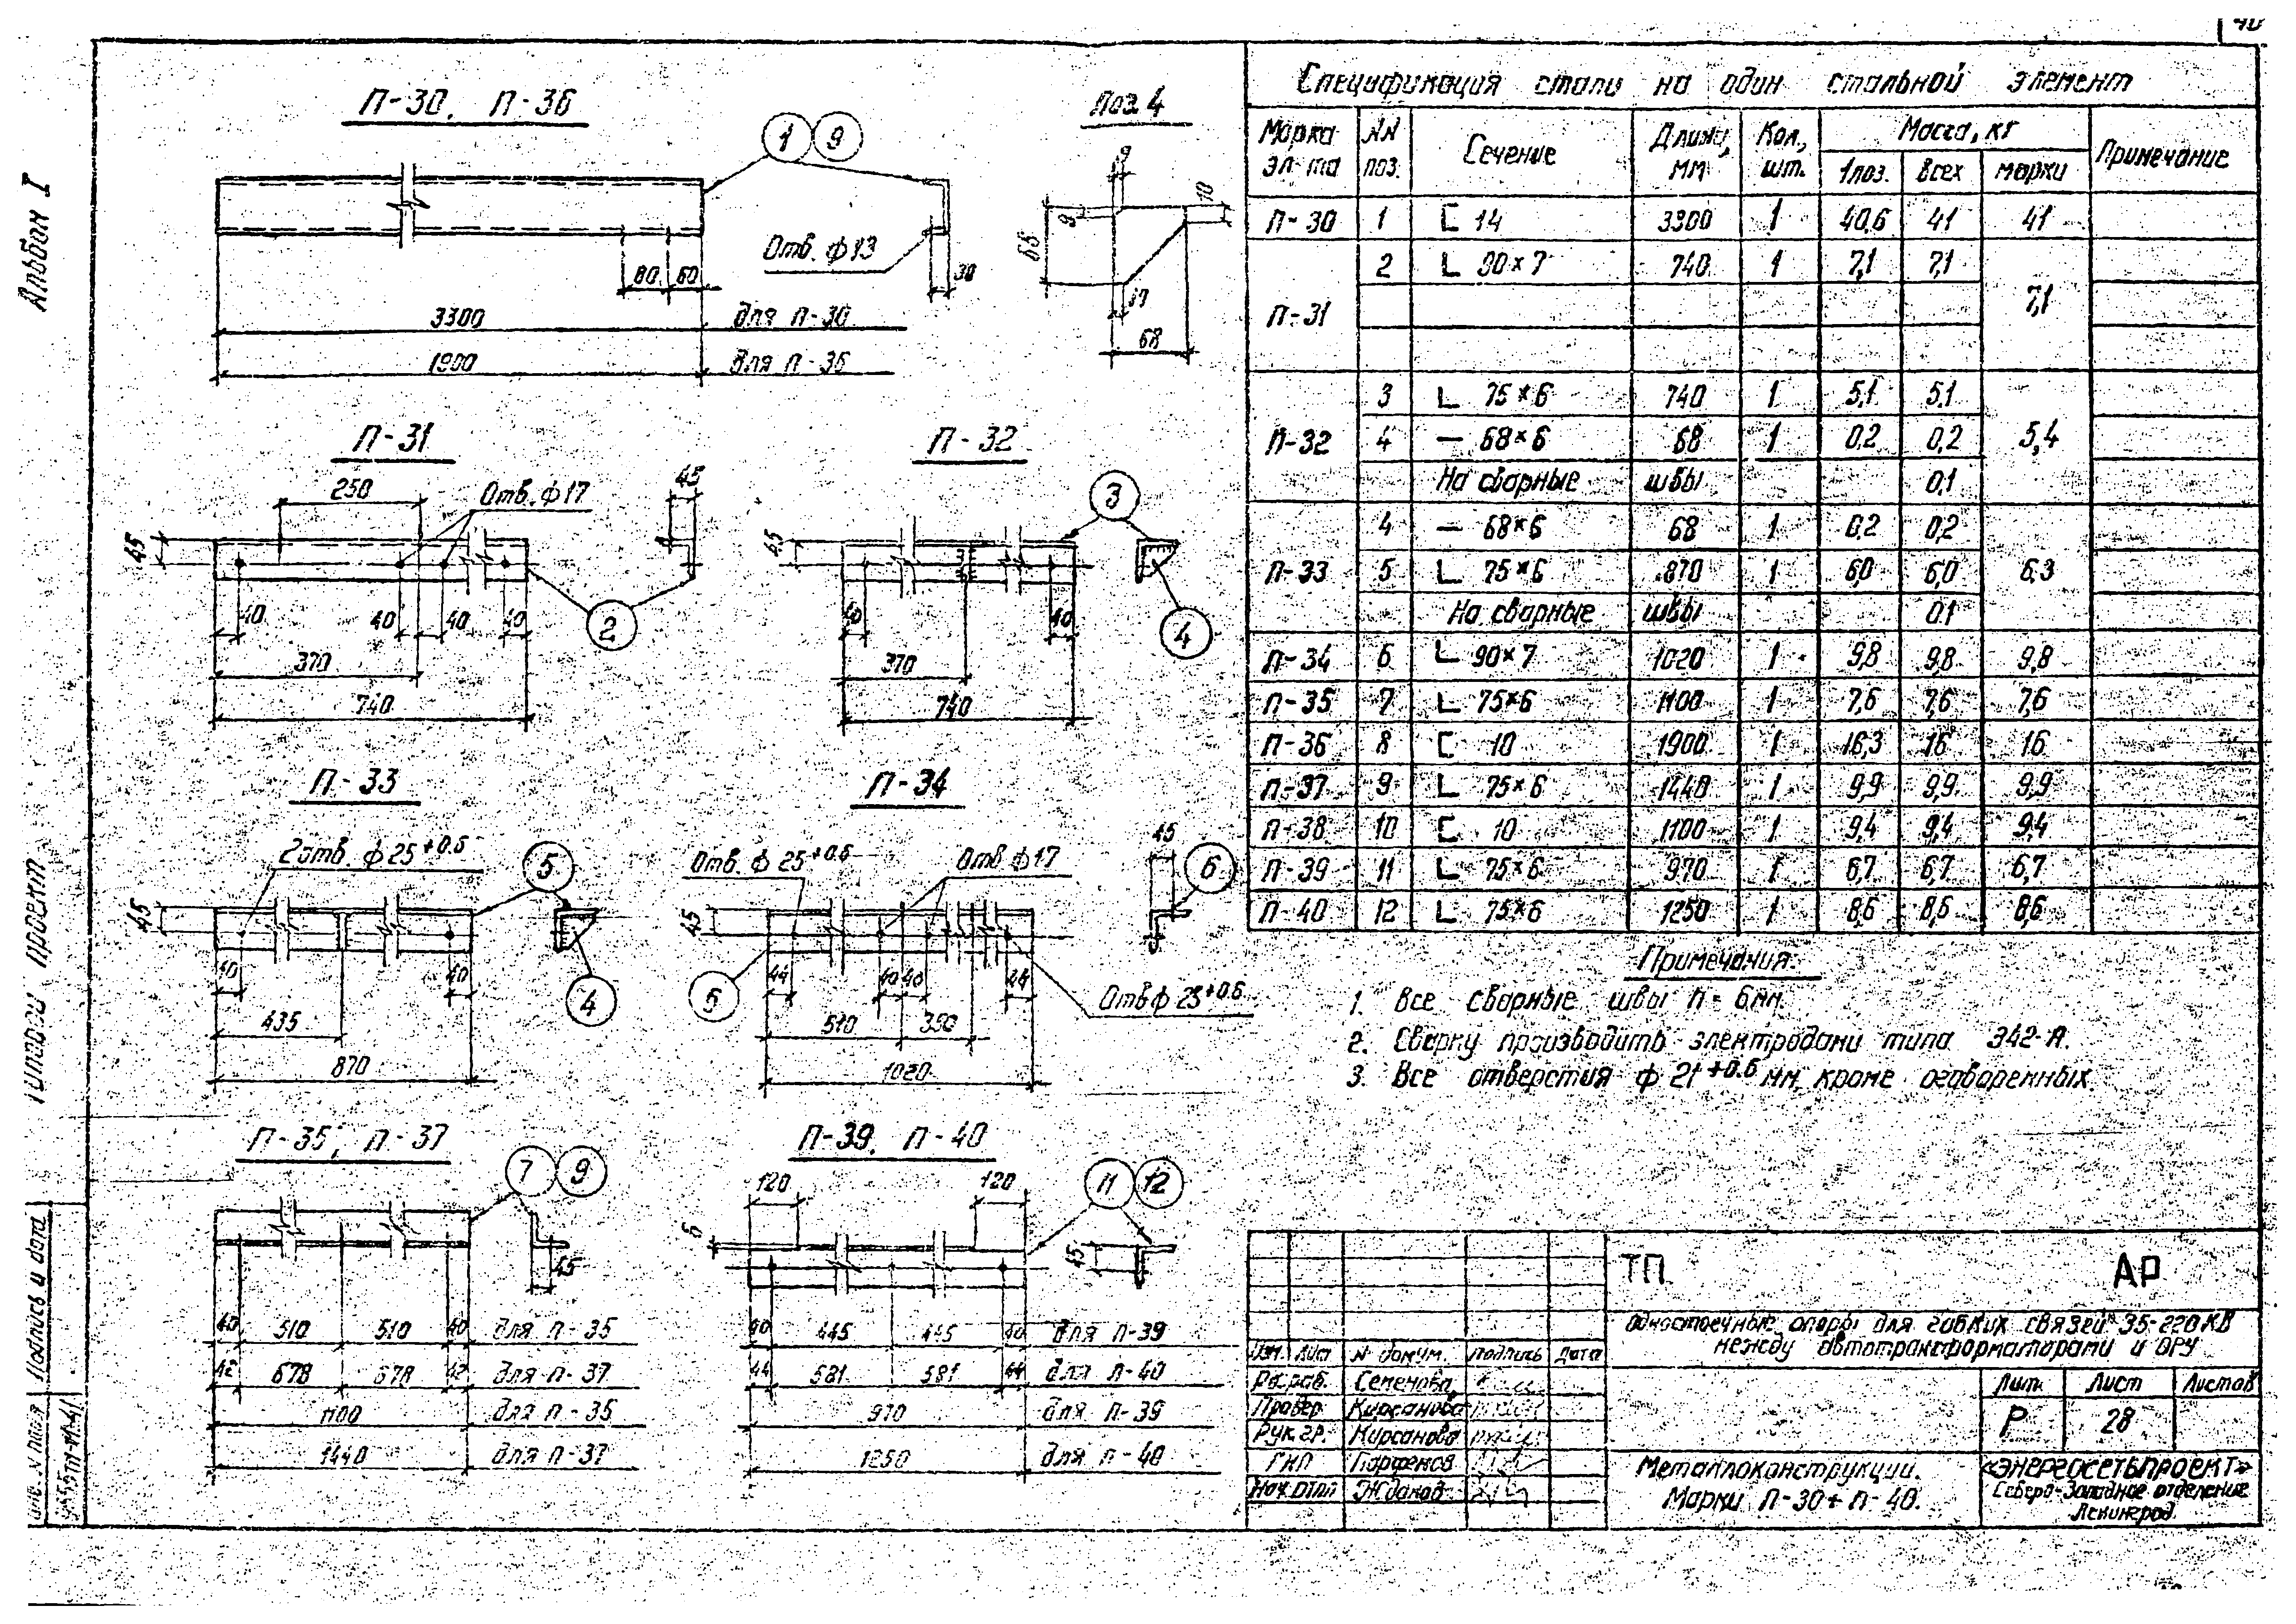 40
Альбом I
Типовой проект
Подпись и дата
Инв. N подл
П-30, П-36
1 9
Отв. ф13
80 60
30
3300 для П-30
1900 для П-36
Поз 4
9
10
9
68
17
68
П-31
250
Отв. ф17
45
45
40 40 40 40
2
370
740
П-32
3
45
40 40
4
370
740
П-33
2отв. ф25+0.6
5
45
40 40
4
435
870
П-34
Отв. ф25+0.6
Отв ф17
45
6
45
44 40 40 44
5
Отв ф 25+0.6
510 350
1020
П-35, П-37
7 9
45
40 510 510 40 для П-35
42 678 678 42 для П-37
1100 для П-35
1440 для П-37
П-39, П-40
120 120
11 12
6
45
40 445 445 40 для П-39
44 581 581 44 для П-40
970 для П-39
1250 для П-40
Спецификация стали на один стальной элемент
Марка эл-та NN поз. Сечение Длина, мм Кол., шт. Масса, кг Примечание
1 поз. всех марки
П-30 1 [ 14 3300 1 40,6 41 41
П-31 2 L 90×7 740 1 7,1 7,1 7,1
П-32 3 L 75×6 740 1 5,1 5,1 5,4
4 — 68×6 68 1 0,2 0,2
На сварные швы 0,1
П-33 4 — 68×6 68 1 0,2 0,2 6,3
5 L 75×6 870 1 6,0 6,0
На сварные швы 0,1
П-34 6 L 90×7 1020 1 9,8 9,8 9,8
П-35 7 L 75×6 1100 1 7,6 7,6 7,6
П-36 8 [ 10 1900 1 16,3 16 16
П-37 9 L 75×6 1440 1 9,9 9,9 9,9
П-38 10 [ 10 1100 1 9,4 9,4 9,4
П-39 11 L 75×6 970 1 6,7 6,7 6,7
П-40 12 L 75×6 1250 1 8,6 8,6 8,6
Примечания:
1. Все сварные швы h = 6мм.
2. Сварку производить электродами типа Э42-А.
3. Все отверстия ф 21+0.6 мм, кроме оговоренных.
ТП АР
Одностоечные опоры для гибких связей 35-220 КВ
между автотрансформаторами и ОРУ
Изм. Лист N докум. Подпись Дата
Разраб. Семенова
Провер Кирсанова
Рук.гр. Кирсанова
ГИП Парфенов
Нач.отдл Жданов
Лит. Лист Листов
Р 28
Металлоконструкции.
Марки П-30÷П-40.
«ЭНЕРГОСЕТЬПРОЕКТ»
Северо-Западное отделение
Ленинград